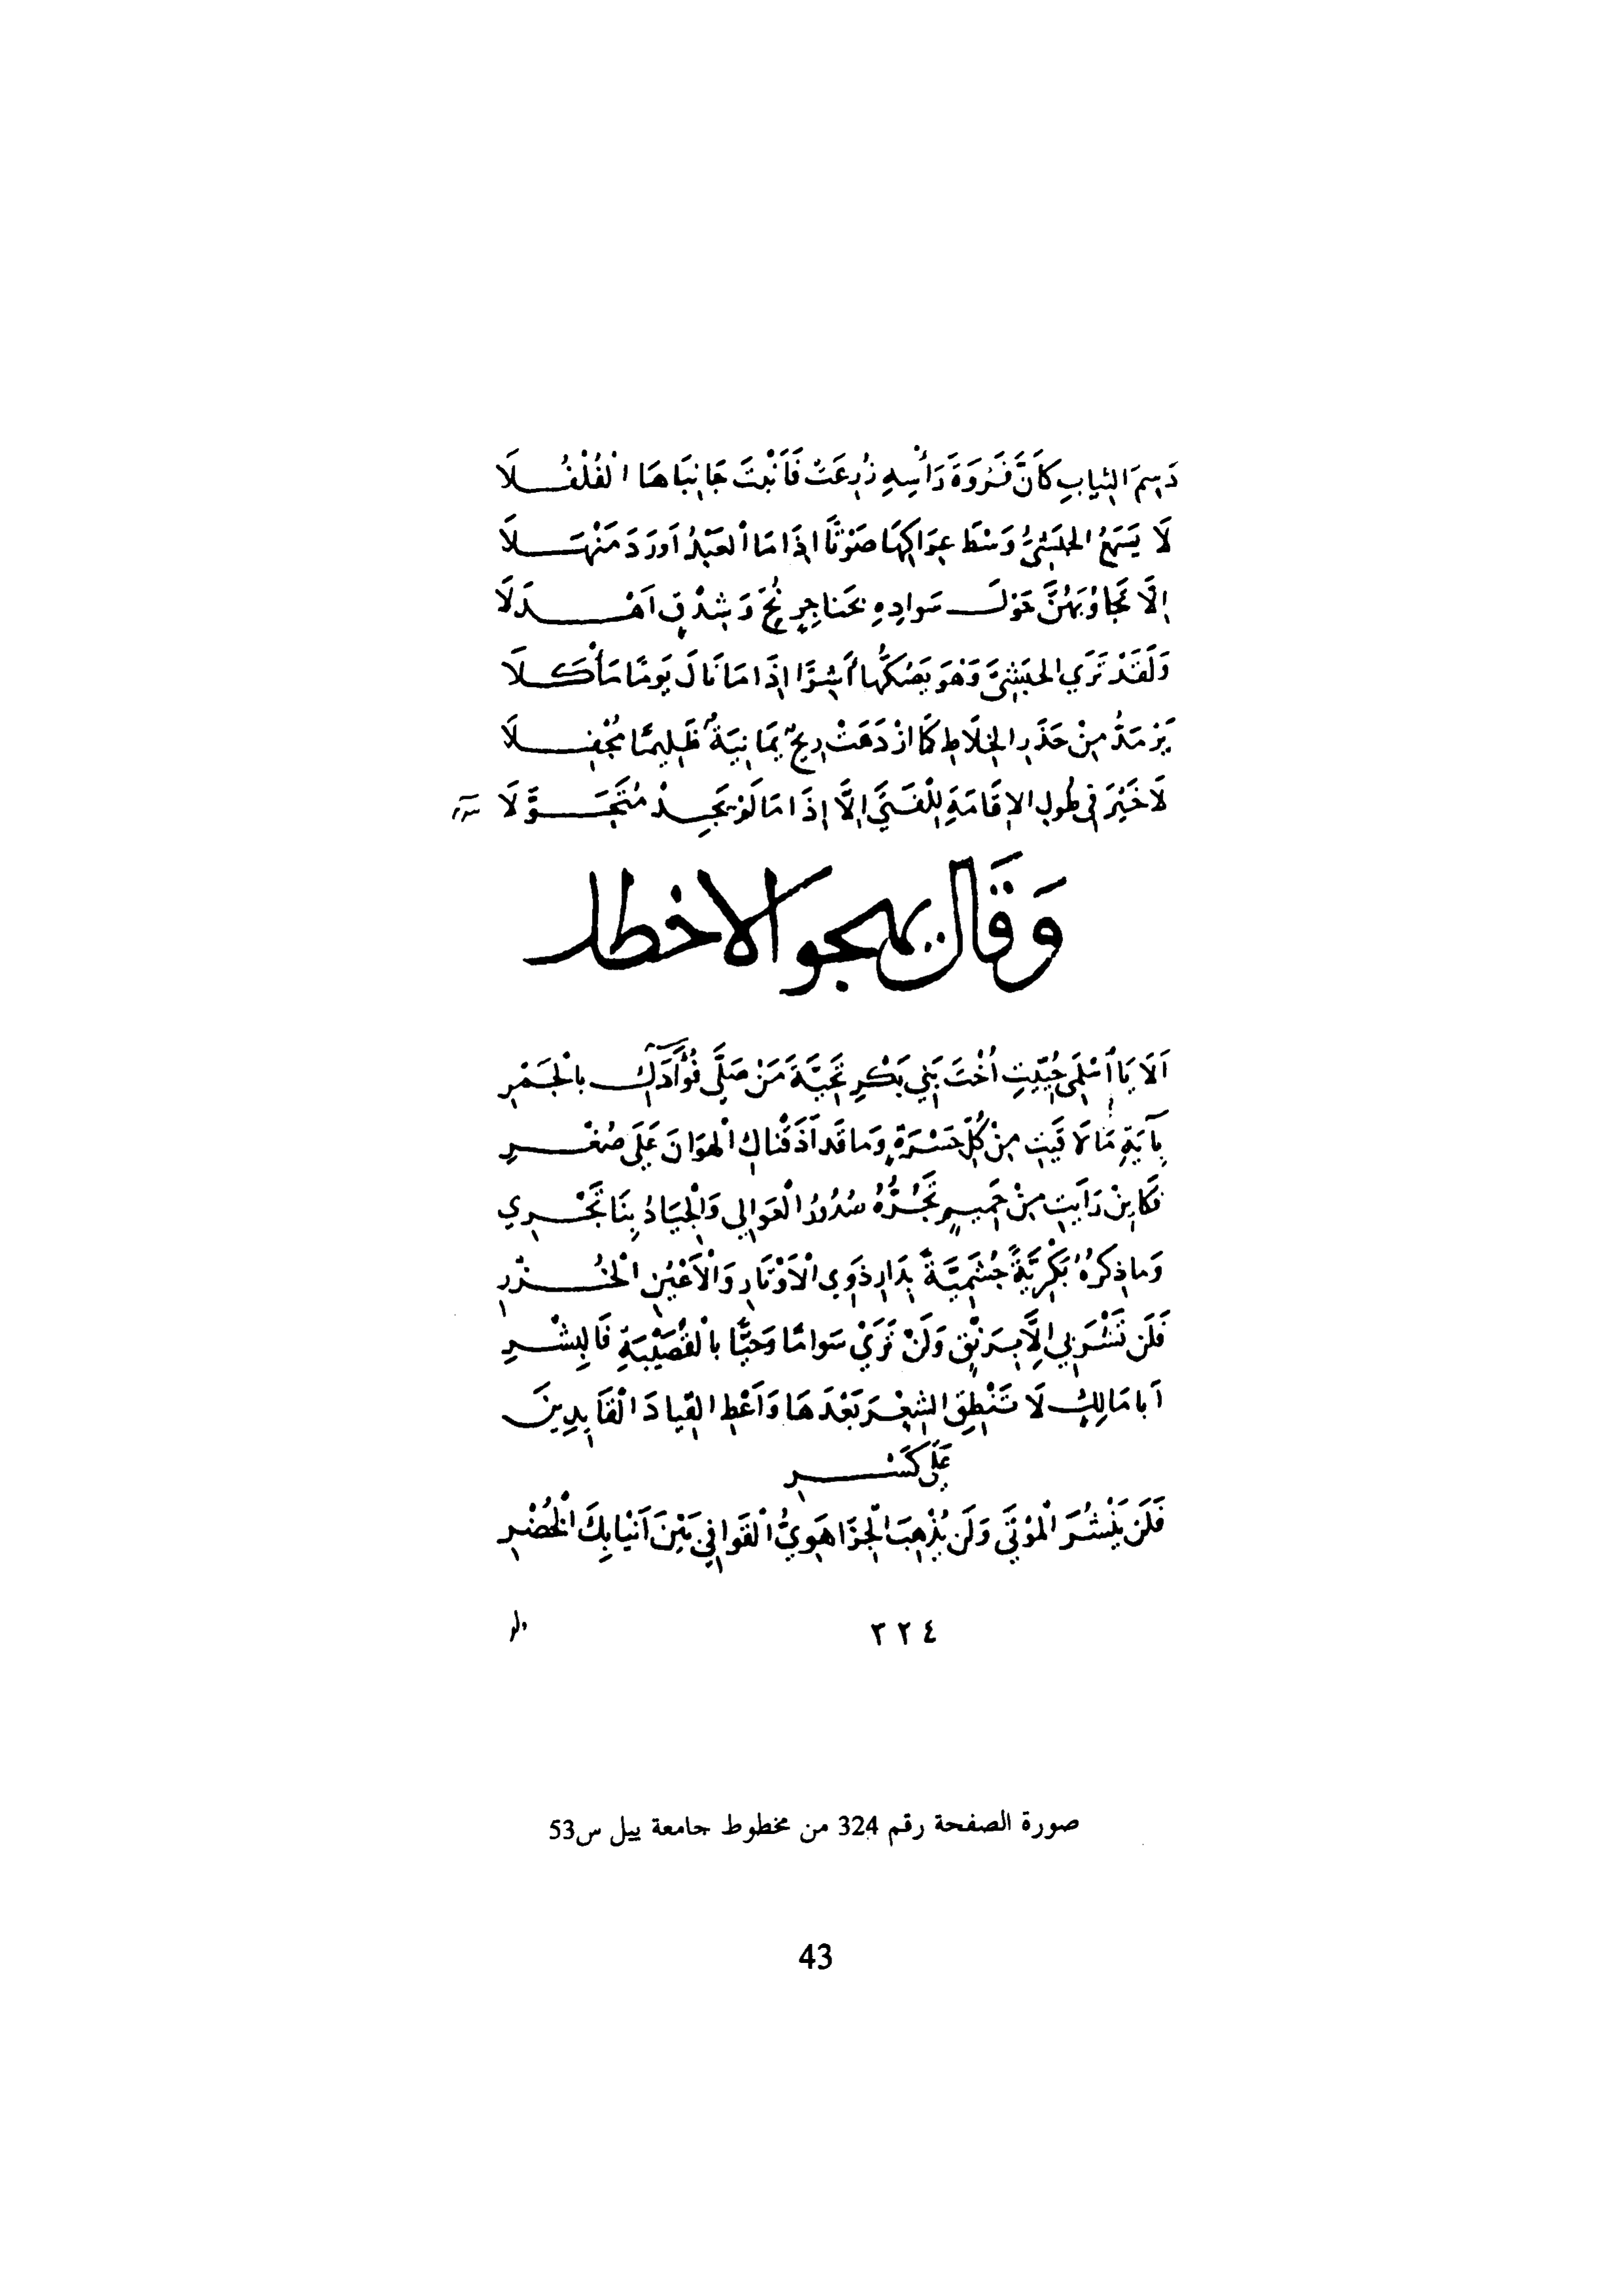 دَسِمَ الثِيابِ كَأَنَّ فَرْوَةَ رَأْسِهِ زُرِعَتْ فَأَنْبَتَ جَانِبَاهَا الْفُلْفُلَا
لَا يَسْمَعُ الحَبَشِيُّ وَسْطَ عِرَاكِهَا صَوْتًا اِذَا مَا الْعَبْدُ اَورَدَ مَنْهَلَا
اِلَّا تَجَاوُبَهُنَّ حَوْلَ سَوادِهِ بحَناجِرٍ نُحٍّ وَشِدْقٍ اَهْدَلَا
وَلَقَدْ تَرَي الحَبَشِيَّ وَهْوَ يَصُكُّهَا أَشِرًا اِذَا مَا نَالَ يَومًا مَأْكَلَا
يَرْمَدُّ مِنْ حَذَرِ الخِلَاطِ كَمَا ازْدَهَتْ رِيحٌ يَمَانِيَةٌ ظَلِيمًا مُجْفِلَا
لَا خَيْرَ فِي طُولِ الاِقَامَةِ لِلْفَتَي اِلَّا اِذَا مَا لَمْ يَجِدْ مُتَحَوَّلَا
وَقَالَ يهجو الاخطل
اَلَا يَا اَسْلَمِي حُيِّيتِ اُخْتَ بَنِي بَكْرِ تَحِيَّةَ مَنْ صَلَّي فُؤَادَكِ بالْجَمْرِ
بِآيَةِ مَا لَاقَيتِ مِنْ كُلِّ حَسْرَةٍ وَما قَد اَذَقْناكِ الْهَوَانَ عَلَي صُغْرِ
فَكَايِنْ رَاَيتِ مِنْ حَمِيمٍ تَجُرُّهُ صُدُورُ الْعَوَالِي وَالْجِيَادُ بِنَا تَجْرِي
وَما ذِكرُهُ بَكْرِيَّةً جُشَمِيَّةً بِدَارِ ذَوِي الْاَوْتَارِ وَالْاَعْيُنِ الْخُزْرِ
فَلَن تَشْرَبِي اِلَّا بِرَنْقٍ وَلَنْ تَرَيْ سَوامًا وَحَيًّا بالْقُصَيْبَةِ فَالبِشْرِ
اَبا مَالِكٍ لَا تَنْطِقِ الشِعْرَ بَعْدَهَا وَاَعْطِ القِيادَ الْقَايِدِينَ
عَلَي كَسْرِ
فَلَن يَنْشُرَ الْمَوْتَي وَلَن يُذْهِبَ الْجِزَا هَوِيُّ الْقَوافِي بَيْنَ اَنْيَابِكَ الْخُضْرِ
٣٢٤
صورة الصفحة رقم 324 من مخطوط جامعة ييل س53
43